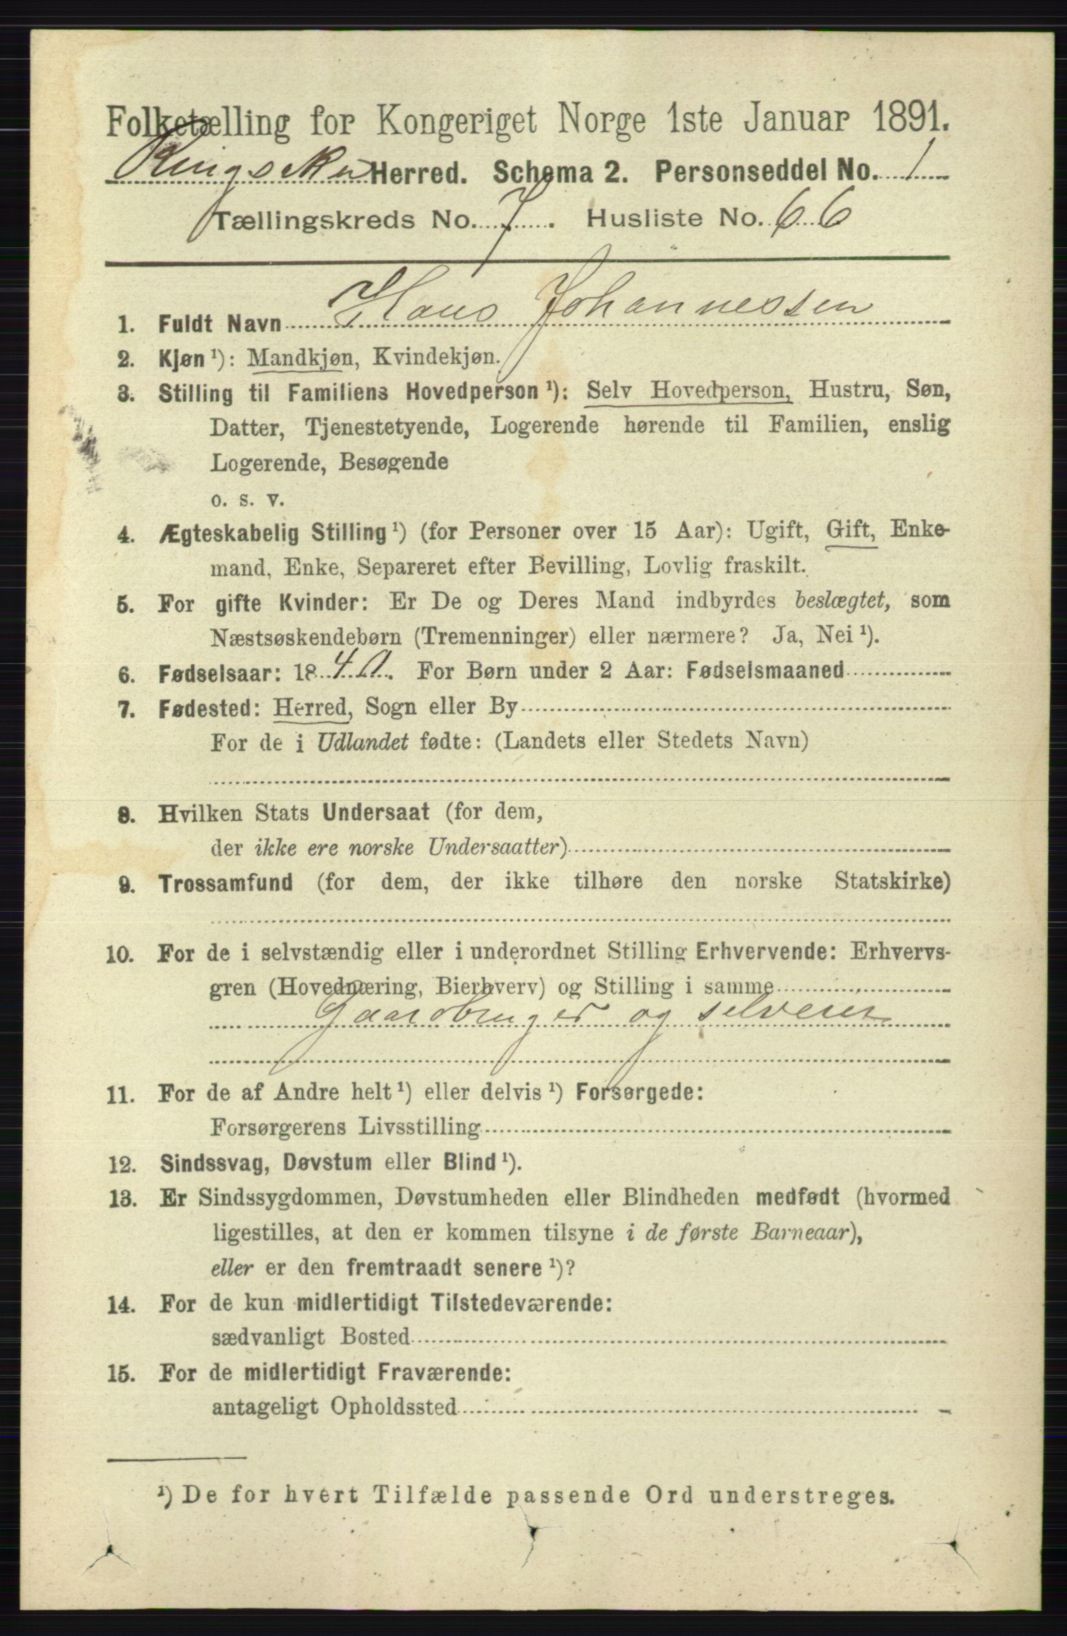 Folketælling for Kongeriget Norge 1ste Januar 1891.
Ringsaker Herred. Schema 2. Personseddel No. 1
Tællingskreds No. 7. Husliste No. 66
1. Fuldt Navn Hans Johannessen
2. Kjøn ¹): Mandkjøn, Kvindekjøn.
3. Stilling til Familiens Hovedperson ¹): Selv Hovedperson, Hustru, Søn,
Datter, Tjenestetyende, Logerende hørende til Familien, enslig
Logerende, Besøgende
o. s. v.
4. Ægteskabelig Stilling ¹) (for Personer over 15 Aar): Ugift, Gift, Enke-
mand, Enke, Separeret efter Bevilling, Lovlig fraskilt.
5. For gifte Kvinder: Er De og Deres Mand indbyrdes beslægtet, som
Næstsøskendebørn (Tremenninger) eller nærmere? Ja, Nei ¹).
6. Fødselsaar: 1840. For Børn under 2 Aar: Fødselsmaaned
7. Fødested: Herred, Sogn eller By
For de i Udlandet fødte: (Landets eller Stedets Navn)
8. Hvilken Stats Undersaat (for dem,
der ikke ere norske Undersaatter)
9. Trossamfund (for dem, der ikke tilhøre den norske Statskirke)
10. For de i selvstændig eller i underordnet Stilling Erhvervende: Erhvervs-
gren (Hovednæring, Bierhverv) og Stilling i samme
Gaardbruger og selveier
11. For de af Andre helt ¹) eller delvis ¹) Forsørgede:
Forsørgerens Livsstilling
12. Sindssvag, Døvstum eller Blind ¹).
13. Er Sindssygdommen, Døvstumheden eller Blindheden medfødt (hvormed
ligestilles, at den er kommen tilsyne i de første Barneaar),
eller er den fremtraadt senere ¹)?
14. For de kun midlertidigt Tilstedeværende:
sædvanligt Bosted
15. For de midlertidigt Fraværende:
antageligt Opholdssted
¹) De for hvert Tilfælde passende Ord understreges.